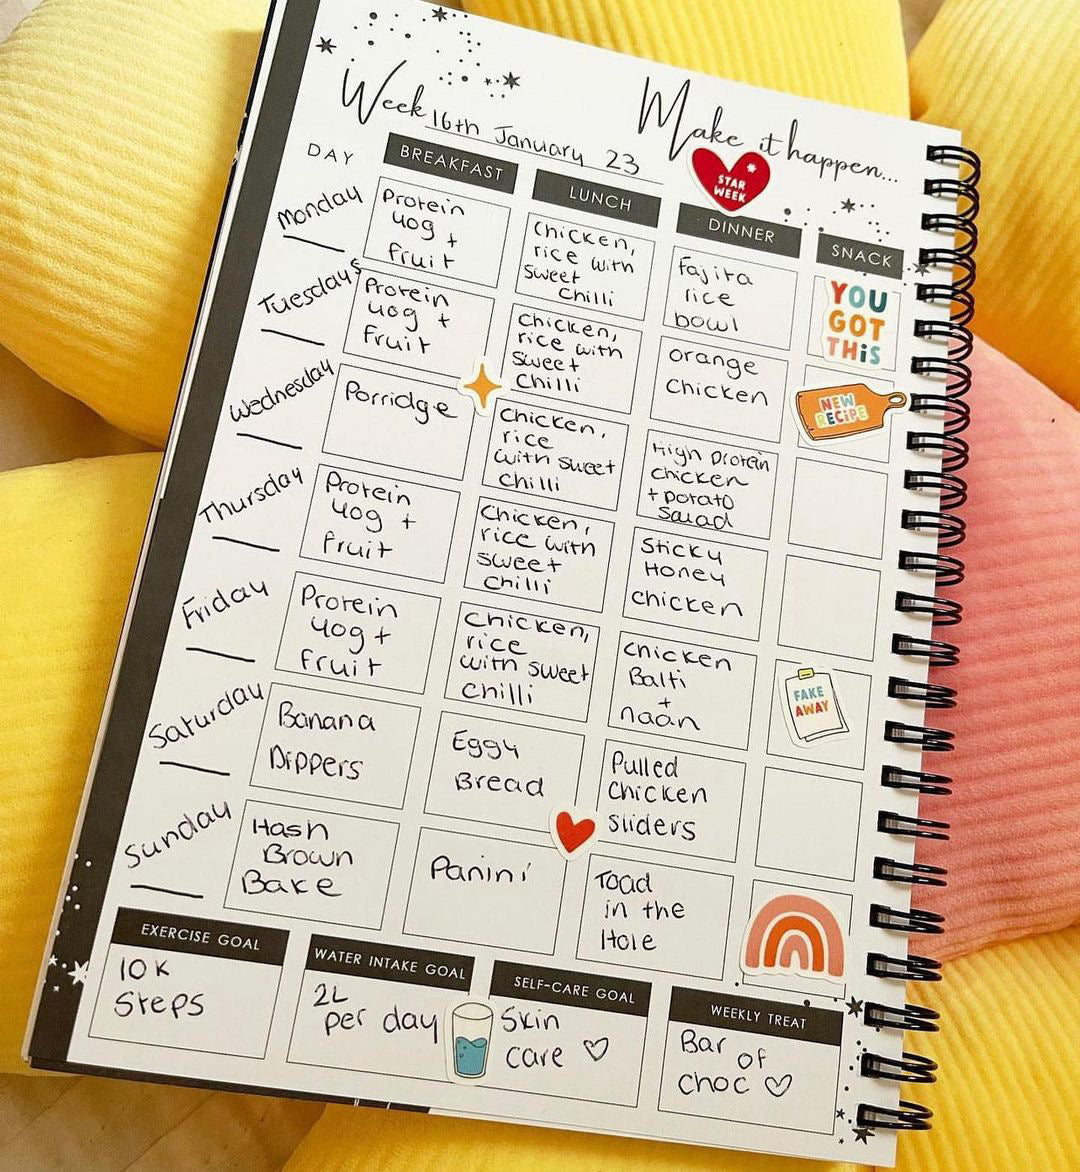 Week 16th January 23
Make it happen...
STAR
WEEK
DAY
BREAKFAST
LUNCH
DINNER
SNACK
Monday
Protein
yog +
fruit
Chicken,
rice with
sweet
chilli
Fajita
rice
bowl
YOU
GOT
THiS
Tuesdays
Protein
yog +
fruit
Chicken,
rice with
sweet
chilli
orange
chicken
NEW
RECiPE
Wednesday
Porridge
Chicken,
rice
with sweet
chilli
High protein
chicken
+ potato
salad
Thursday
Protein
yog +
fruit
Chicken,
rice with
sweet
chilli
Sticky
Honey
chicken
Friday
Protein
yog +
fruit
Chicken,
rice
with sweet
chilli
Chicken
Balti
+
naan
FAKE
AWAY
Saturday
Banana
Dippers
Eggy
Bread
Pulled
Chicken
Sliders
Sunday
Hash
Brown
Bake
Panini
Toad
in the
Hole
EXERCISE GOAL
10K
Steps
WATER INTAKE GOAL
2L
per day
SELF-CARE GOAL
Skin
care ♡
WEEKLY TREAT
Bar of
choc ♡